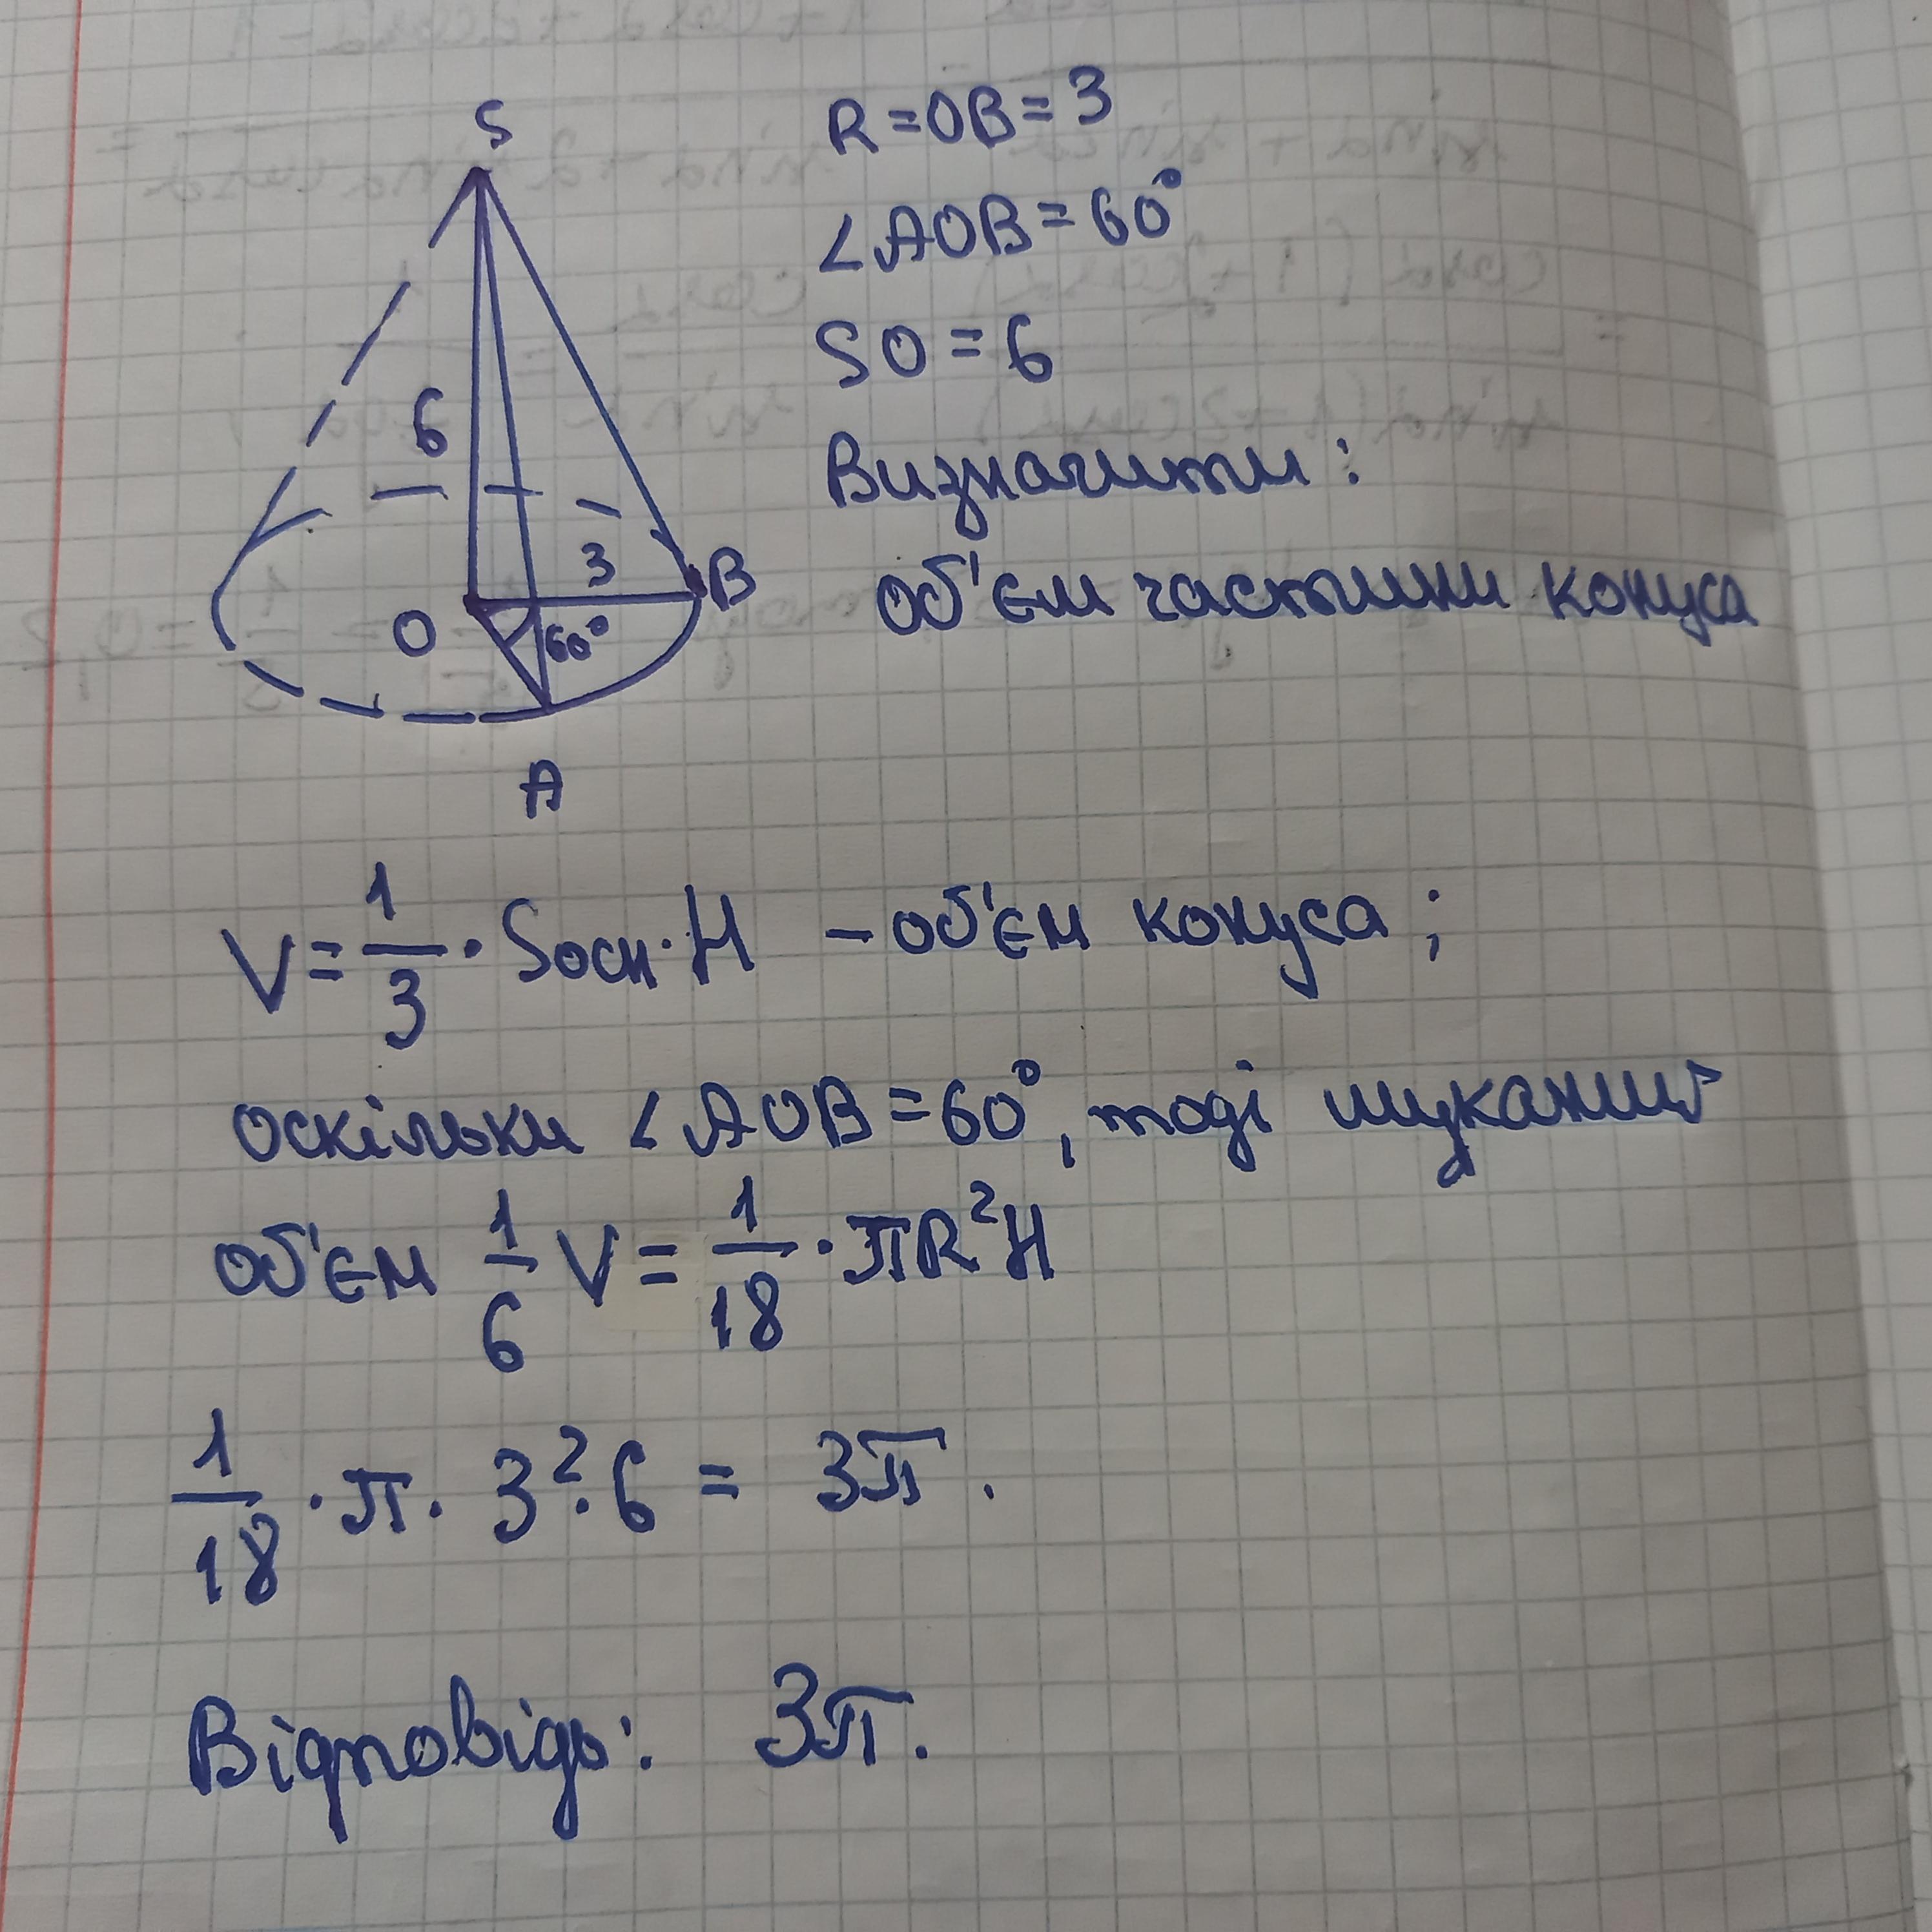 S
R = OB = 3
∠AOB = 60°
SO = 6
6
Визначити:
3
B
об'єм частини конуса
O
60°
A
V = 1/3 · Sосн · H – об'єм конуса;
оскільки ∠AOB = 60°, тоді шуканий
об'єм 1/6 V = 1/18 · πR²H
1/18 · π · 3² · 6 = 3π.
Відповідь: 3π.